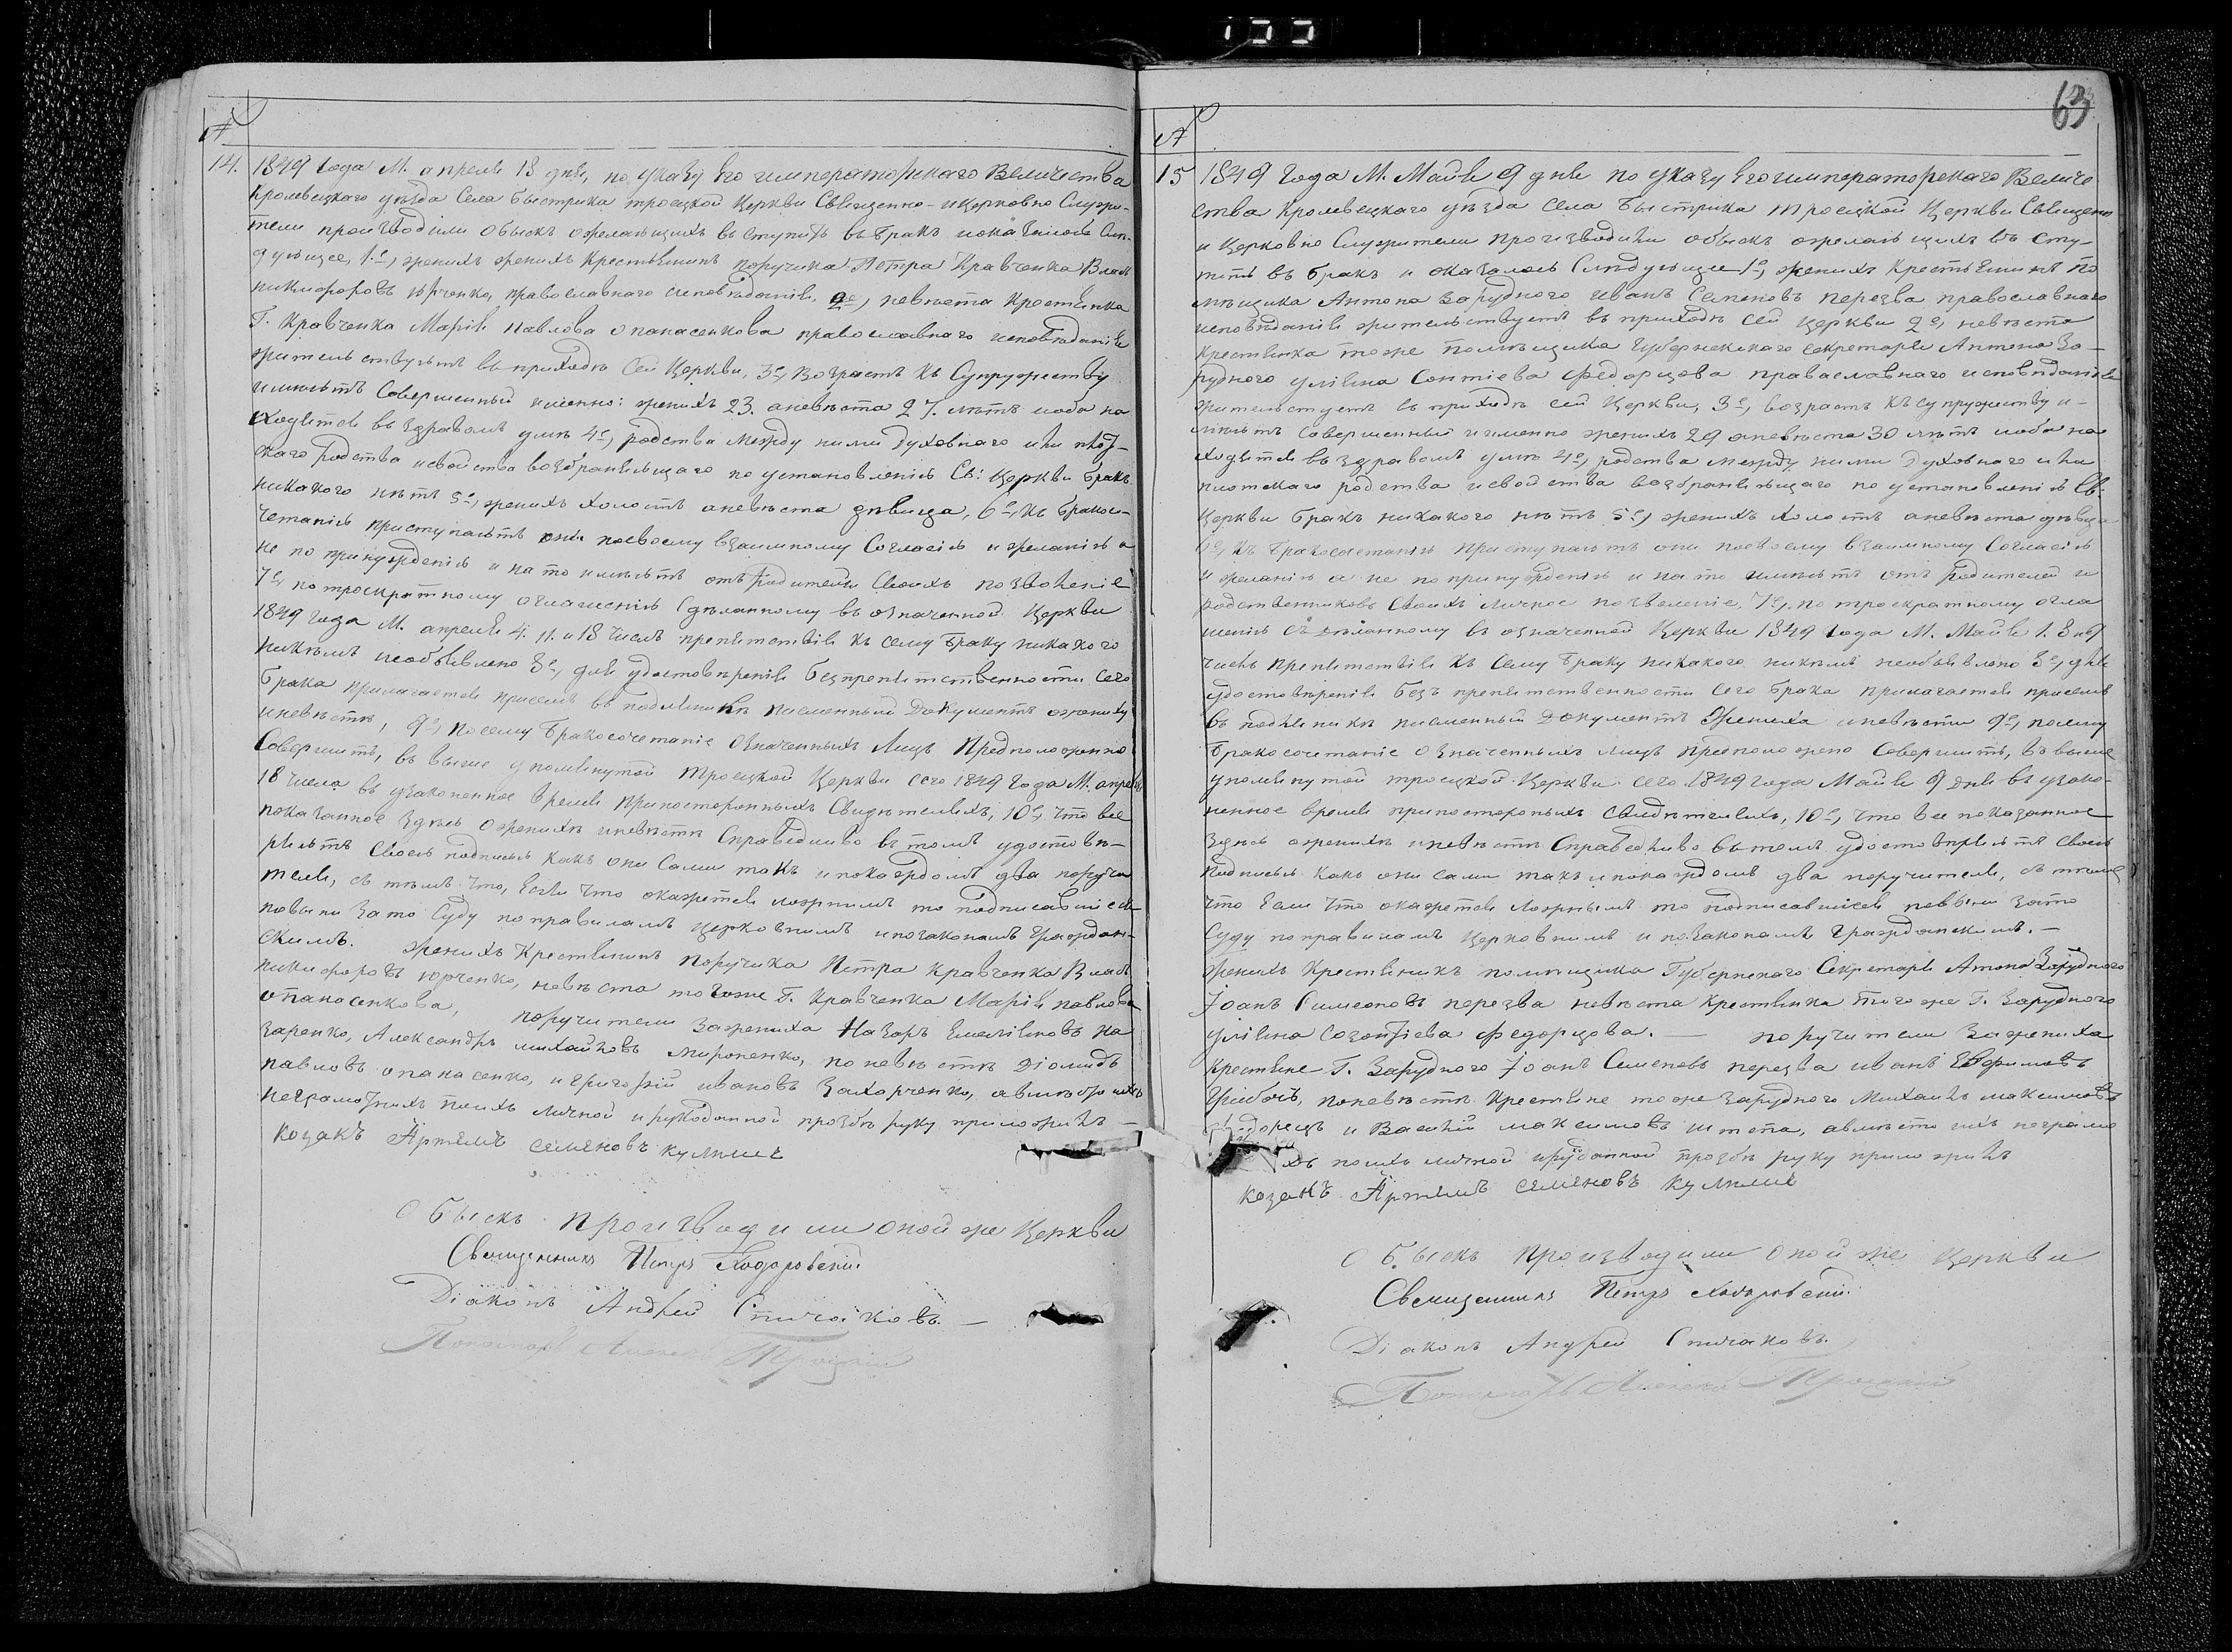 63
№
14. 1849 года М. апреля 18 дня, по указу Его императорскаго Величества
Кролевецкаго уезда Села Быстрика троецкой Церкви Священно-ицерковно Служи-
тели производили Обыскъ ожелающихъ вступить въ бракъ иоказалось Слѣ-
дующее, 1е, женихъ женихъ Крестьянинъ поручика Петра Кравченка Власъ
никифоровъ юрченко, православнаго исповѣданія, 2е, невѣста крестьянка
Г. Кравченка Марія павлова опанасенкова православнаго исповѣданія
жительствуютъ въ приходѣ Сей Церкви, 3е, Возрастъ къ Супружеству
имѣютъ Совершенный именно: женихъ 23. аневѣста 27. лѣтъ иоба на
ходятся въ здравомъ умѣ 4е, родства между ними духовнаго или плот-
скаго родства исвойства возбраняющаго по установленію Св: Церкви бракъ
никакого нѣтъ 5е, женихъ холостъ аневѣста дѣвица, 6е, къ бракосо-
четанію приступаютъ они посвоему взаимному Согласію и желанію а
не по принужденію и на то имѣютъ отъ родителей Своихъ позволеніе
7е, потроекратному оглашенію Сдѣланному въ означенной Церкви
1849 года М. апреля 4. 11. и 18 Чиселъ препятствія къ сему браку никакого
никѣмъ необъявлено 8е, для удостовѣренія безпрепятственности Сего
брака прилагается присемъ въ подлинникѣ писменный Документъ ожениху
иневѣстѣ, 9е, посему бракосочетаніе Означенныхъ Лицъ Предположенно
Совершить, въ выше упомянутой троецкой Церкви сего 1849 года М. апреля
18 числа въ узаконенное время припостороннихъ Свидѣтеляхъ, 10е, что все
показанное здѣсь Оженихѣ иневѣстѣ Справедливо въ томъ удостовѣ-
ряютъ своею подписью какъ они Сами такъ ипокаждомъ два поручи
теля, съ тѣмъ что, Если что окажется ложнимъ то подписавшиеся
повыни зато Суду поправиламъ церковнимъ ипозаконамъ Граждан-
скимъ. женихъ Крестьянинъ поручика Петра Кравченка Власъ
никифоровъ юрченко, невѣста тогоже Г. Кравченка Марія павлова
опанасенкова, поручители зажениха Назаръ Емеліяновъ на
заренко, Александръ михайловъ мироненко, поневѣстѣ Діомидъ
павловъ опанасенко, игригорій ивановъ Захарченко, авмѣсто ихъ
неграмотнихъ поихъ личной ирукоданной прозбѣ руку приложилъ —
козакъ Артемъ семеновъ кулишъ
Обыскъ производили оной же Церкви
Священникъ Петръ Ходоровскій
Діаконъ Андрей Спичаковъ. —
Пономарь Алексей Троицкій
№
15 1849 года М. Майя 9 дня по указу Его императорскаго Величе
ства Кролевецкаго уезда села Быстрика троецкой Церкви Священно
и Церковно Служители производили обыскъ ожелающихъ въ сту-
пить въ бракъ и оказалось Слѣдующее 1е, женихъ крестьянинъ по
мѣщика Антона Зарудного иванъ Семеновъ перезва православнаго
исповѣданія жительствуетъ въ приходѣ сей Церкви 2е, невѣста
крестянка тоже помѣщика Губернскаго секретаря Антона За-
рудного уліяна Сонтіева Федорцова православнаго исповѣданія
жительстуетъ въ приходѣ сей Церкви, 3е, возрастъ къ супружеству и-
мѣютъ Совершенный иименно женихъ 29 аневѣста 30 лѣтъ иоба на
ходятся въ здравомъ умѣ 4е, родства между ними духовнаго или
плотскаго родства исвойства возбраняющаго по установленію Св.
Церкви бракъ никакого нѣтъ 5е, женихъ холостъ аневѣста дѣвица
6е, къ бракосочетанію приступаютъ они посвоему взаимному Согласію
и желанію а не по принужденію и на то имѣютъ отъ родителей и
родственниковъ Своихъ личное позволеніе, 7е, по троекратному огла
шенію Сдѣланному въ означенной Церкви 1849 года М. Майя 1. 8 и 9
чиселъ препятствія къ Сему браку никакого никѣмъ необъявлено 8е, для
удостовѣренія безъ препятственности Сего брака прилагается присемъ
въ подлинникѣ писменный документъ Жениха иневѣсти 9е, посему
бракосочетаніе означенныхъ лицъ предположено Совершить, въ выше
упомянутой троецкой Церкви сего 1849 года Майя 9 дня въ узако-
ненное время припостороныхъ Свидѣтеляхъ, 10е, что все показанное
здесь оженихѣ иневѣстѣ Справедливо въ томъ удостовѣряютъ своею
подписью какъ они сами такъ ипокаждомъ два поручителя, съ тѣмъ
что Если что окажется Ложнымъ то подписавшиеся повыни зато
Суду поправиламъ Церковнимъ и позаконамъ Гражданскимъ. —
женихъ Крестянинъ помѣщика Губернскаго Секретаря Атона Зарудного
Іоанъ Симеоновъ перезва невѣста крестянка тогоже Г. Зарудного
уліяна Созонтіева Федорцова. — поручители зажениха
крестяне Г. Зарудного Іоанъ Семеновъ перезва иванъ Ефимовъ
поневѣстѣ Крестяне тоже зарудного Михаилъ максимовъ
Федорецъ и Василій максимовъ шепта, авмѣсто ихъ неграмо
хъ поихъ личной ирукоданной прозбѣ руку приложилъ
козакъ Артемъ семеновъ кулишъ
Обыскъ производили оной же Церкви
Священникъ Петръ Ходоровскій
Діаконъ Андрей Спичаковъ.
Пономарь Алексей Троицкій